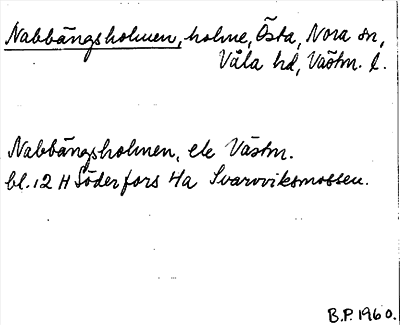 Nabbängsholmen, holme, Östa, Nora sn,
Våla hd, Västm. l.
Nabbängsholmen, ek Västm.
bl. 12 H Söderfors 4a Svarvviksmossen.
B.P. 1960.